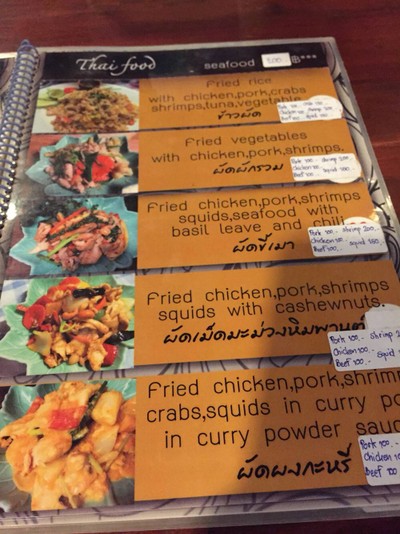 Thai food
seafood 500 ฿***
Fried rice
with chicken,pork,crabs
shrimps,tuna,vegetable.
ข้าวผัด
Fried vegetables
with chicken,pork,shrimps.
ผัดผักรวม
Pork 100.- shrimp 200.-
Chicken 100.-
Beef 100.- squid
Fried chicken,pork,shrimps
squids,seafood with
basil leave and chili
ผัดขี้เมา
Pork 100.- shrimp 200.-
Chicken 100.- squid
Beef 100.-
Fried chicken,pork,shrimps
squids with cashewnuts.
ผัดเม็ดมะม่วงหิมพานต์
Pork 100.- shrimp 2
Chicken 100.- squid
Beef 100.-
Fried chicken,pork,shrim
crabs,squids in curry po
in curry powder sauc
ผัดผงกะหรี่
Pork 100.-
Chicken 10
Beef 100